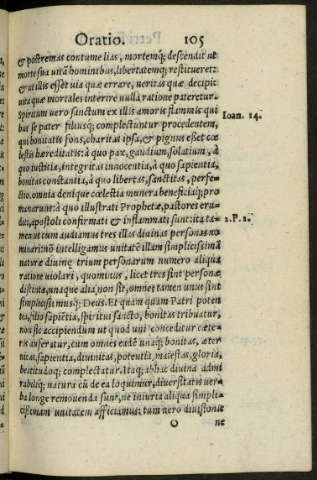 Oratio. 105
& postremas contumelias, mortemq; descendit ut
morte sua uitā hominibus, libertatemq; restitueret:
& ut illis esset uia quæ errare, ueritas quæ decipi:
uita quæ mortales interire nulla ratione pateretur.
Spiritum uero sanctum ex illis amoris flammis qui
bus se pater filiusq; complectuntur procedentem,
qui bonitatis fons, charitas ipsa, & pignus esset cœ
lestis hæreditatis: à quo pax, gaudium, solatium, à
quo iustitia, integritas innocentia, à quo sapientia,
bonitas constantia, à quo libertas, sanctitas, perfe-
ctio, omnia deniq́ue cœlestia munera beneficiaq; pro
manarunt: à quo illustrati Prophetæ, pastores eru-
diti, apostoli confirmati & inflammati sunt: ita ta-
men ut cum audiamus tres illas diuinas personas no
minari non intelligamus unitatē illam simplicissimā
naturæ diuinæ trium personarum numero aliqua
ratione uiolari, quominus, licet tres sint personæ
distinctæ, unaque alia non sit, omnes tamen unus sint
simplicissimusq; Deus. Et quamquam Patri poten
tia, filio sapiētia, spiritui sancto, bonitas tribuatur,
non sic accipiendum ut quod uni conceditur cæte-
ris auferatur, cum omnes eadē unaq; bonitas, æter
nitas, sapientia, diuinitas, potentia, maiestas, gloria,
beatitudoq; complectatur. Itaq; ab hac diuina admi
rabiliq; natura cū de ea loquimur, diuersitatis uer-
ba longe remouenda sunt, ne iniuria aliqua simpli-
cissimam unitatem afficiamus: tum uero diuisionis
O ne
Ioan. 14.
1. P. 1.